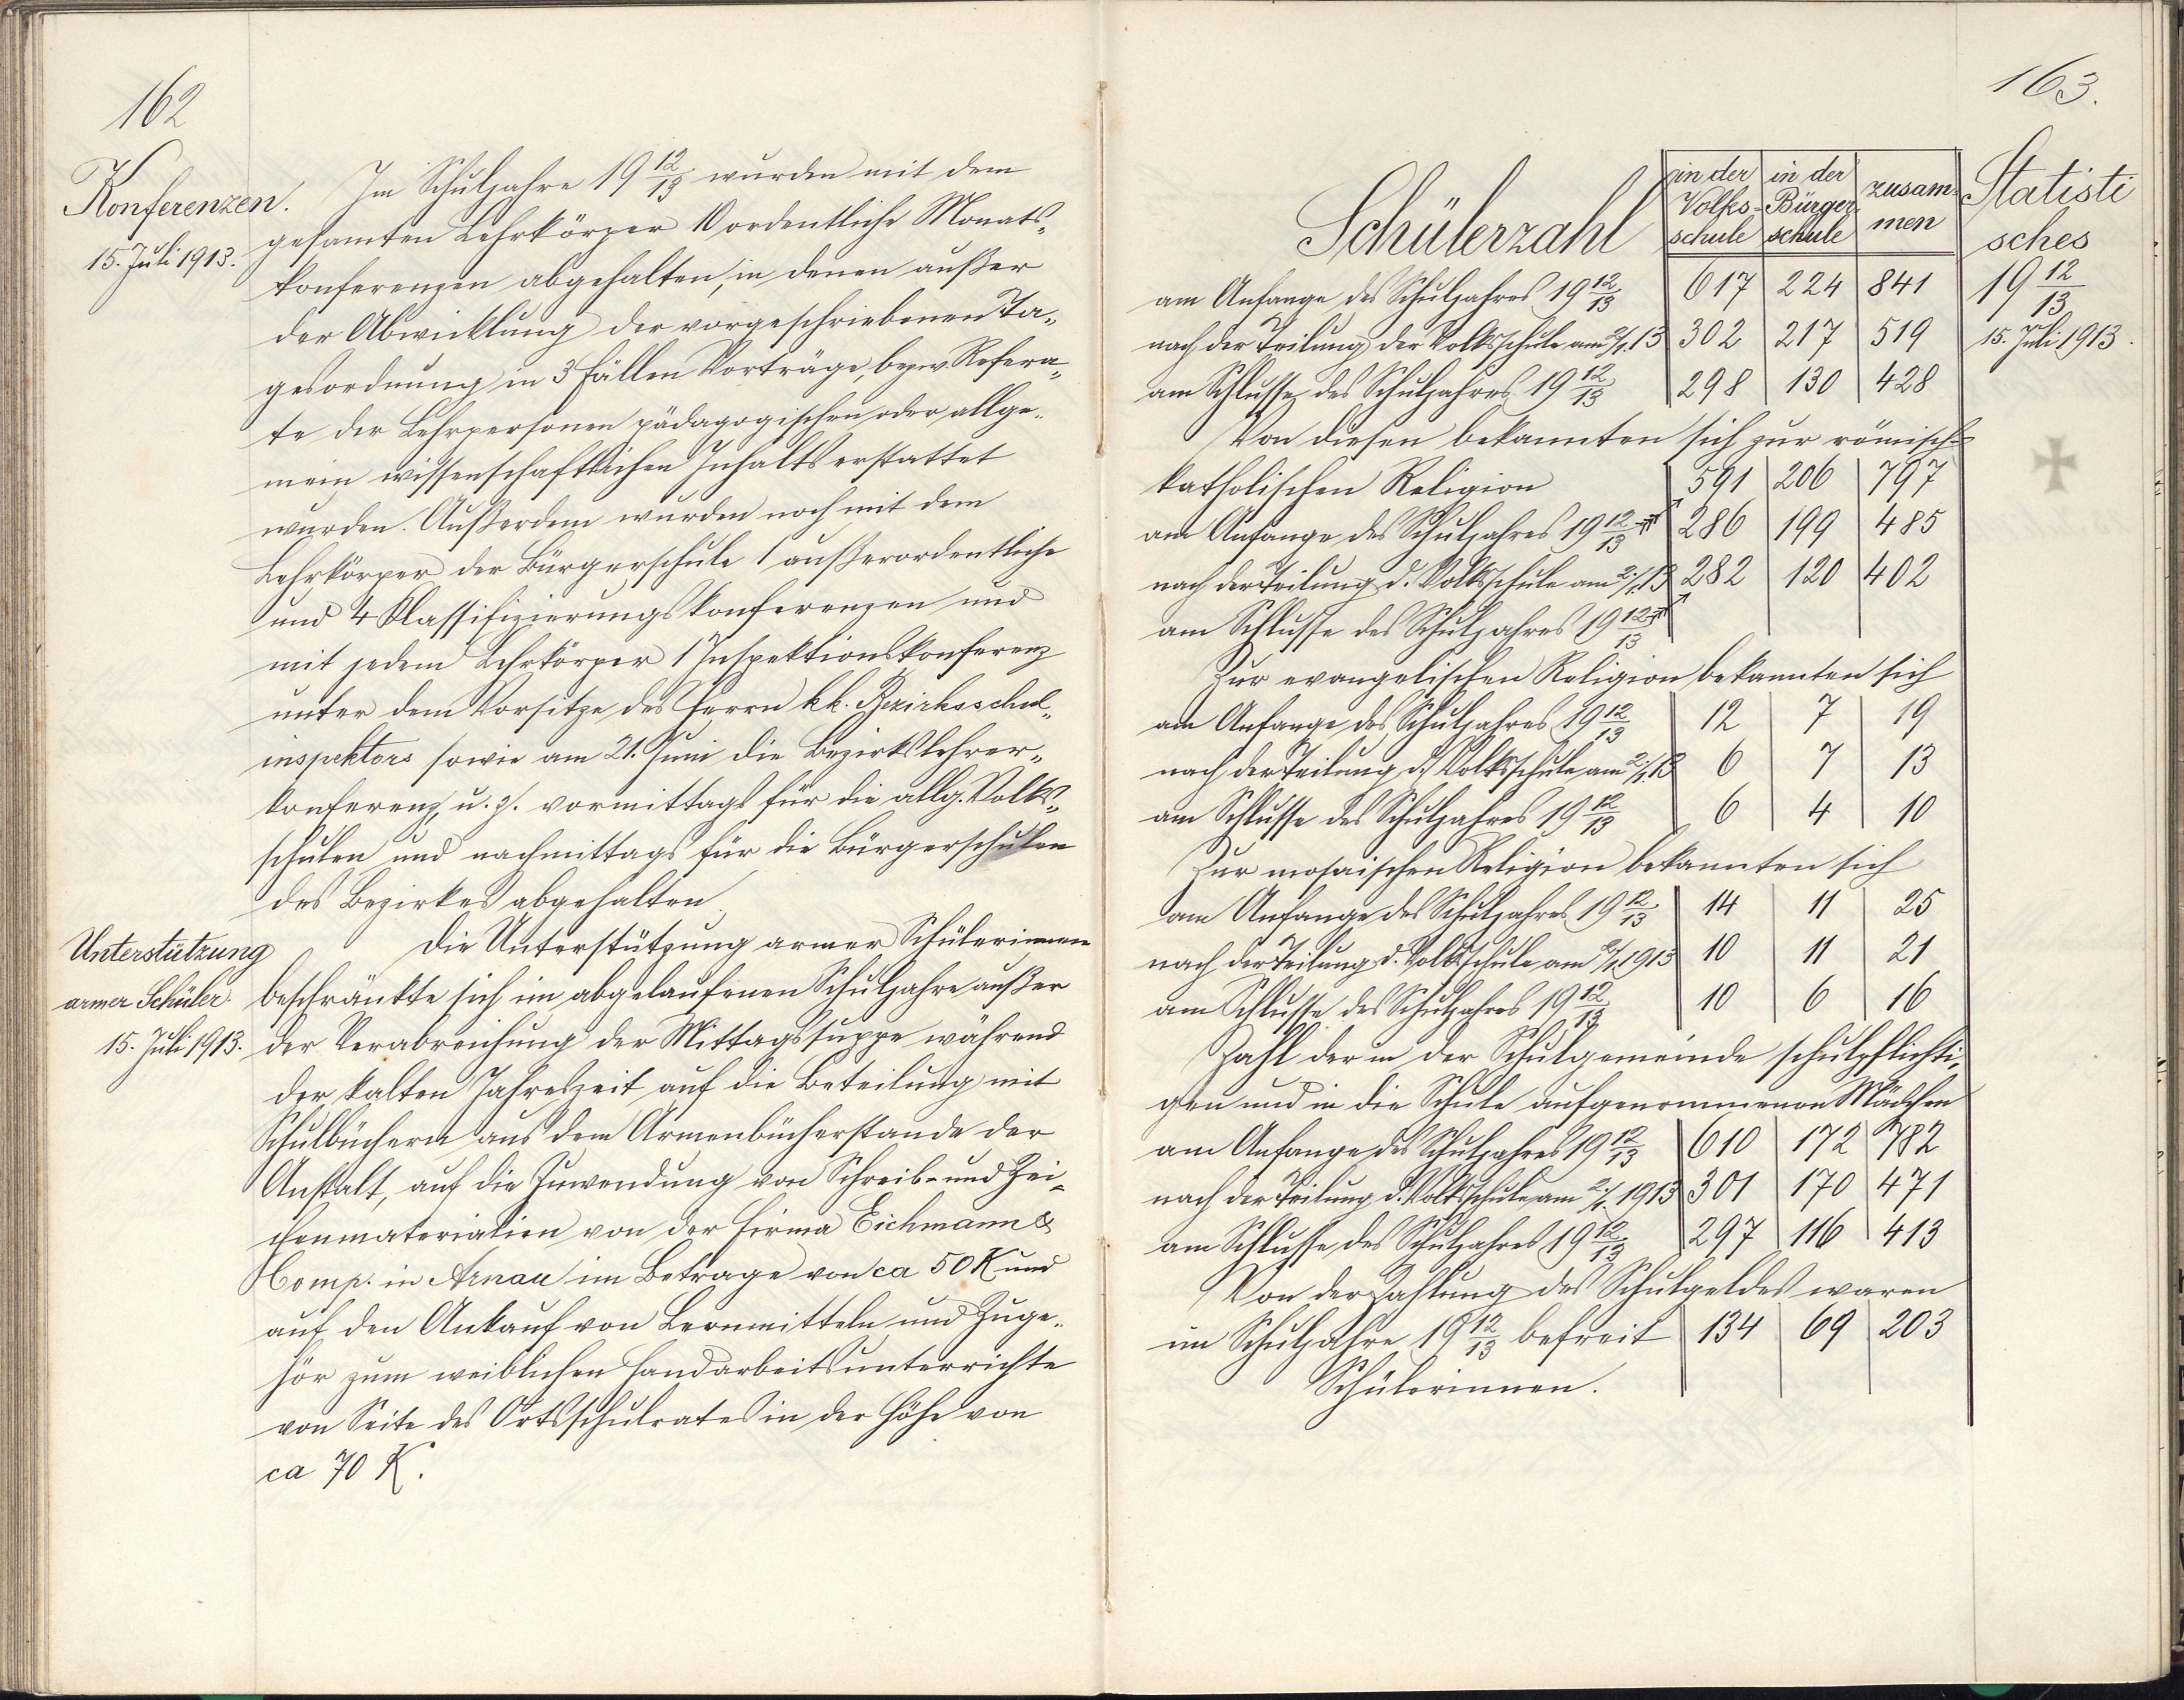 162
Konferenzen.
15. Juli 1913.
Im Schuljahre 19 12/13 wurden mit dem
gesamten Lehrkörper 10 ordentliche Monats-
konferenzen abgehalten, in denen außer
der Abwicklung der vorgeschriebenen Ta-
gesordnung in 3 Fällen Vorträge, bezw. Refera-
te der Lehrpersonen pädagogischen oder allge-
mein wissenschaftlichen Inhalts erstattet
wurden. Außerdem wurden noch mit dem
Lehrkörper der Bürgerschule 1 außerordentliche
und 4 Klassifizierungskonferenzen und
mit jedem Lehrkörper 1 Inspektionskonferenz
unter dem Vorsitze des Herrn k.k. Bezirksschul-
inspektors sowie am 21. Juni die Bezirkslehrer-
konferenz u. z. vormittags für die allg. Volks-
schulen und nachmittags für die Bürgerschulen
des Bezirkes abgehalten.
Unterstützung
armer Schüler.
15. Juli 1913.
Die Unterstützung armer Schülerinnen
beschränkte sich im abgelaufenen Schuljahre außer
der Verabreichung der Mittagssuppe während
der kalten Jahreszeit auf die Beteilung mit
Schulbüchern aus dem Armenbücherstande der
Anstalt, auf die Zuwendung von Schreib- und Zei-
chenmaterialien von der Firma Eichmann &
Comp. in Arnau im Betrage von ca 50 K und
auf den Ankauf von Lernmitteln und Zuge-
hör zum weiblichen Handarbeitsunterrichte
von Seite des Ortsschulrates in der Höhe von
ca 70 K.
163.
Statisti
sches
19 12/13
15. Juli 1913.
Schülerzahl | in der Volks-schule | in der Bürger-schule | zusam-men
am Anfange des Schuljahres 19 12/13 617 224 841
nach der Teilung der Volksschule am 2/1. 13 302 217 519
am Schlusse des Schuljahres 19 12/13 298 130 428
Von diesen bekannten sich zur römisch-
katholischen Religion 591 206 797
am Anfange des Schuljahres 19 12/13 286 199 485
nach der Teilung d. Volksschule am 2./1. 13 282 120 402
am Schlusse des Schuljahres 19 12/13
Zur evangelischen Religion bekannten sich
am Anfange des Schuljahres 19 12/13 12 7 19
nach der Teilung d. Volksschule am 2./1. 13 6 7 13
am Schlusse des Schuljahres 19 12/13 6 4 10
Zur mosaischen Religion bekannten sich
am Anfange des Schuljahres 19 12/13 14 11 25
nach der Teilung d. Volksschule am 2./1. 1913 10 11 21
am Schlusse des Schuljahres 19 12/13 10 6 16
Zahl der in der Schulgemeinde schulpflichti-
gen und in die Schule aufgenommenen Mädchen
am Anfange des Schuljahres 19 12/13 610 172 782
nach der Teilung d. Volksschule am 2./1. 1913 301 170 471
am Schlusse des Schuljahres 19 12/13 297 116 413
Von der Zahlung des Schulgeldes waren
im Schuljahre 19 12/13 befreit 134 69 203
Schülerinnen.